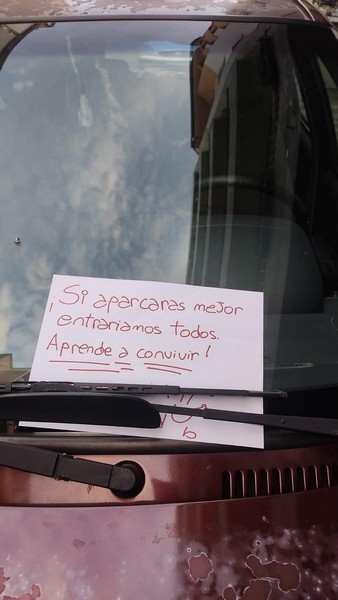 Si aparcaras mejor
entrariamos todos.
¡Aprende a convivir!
b